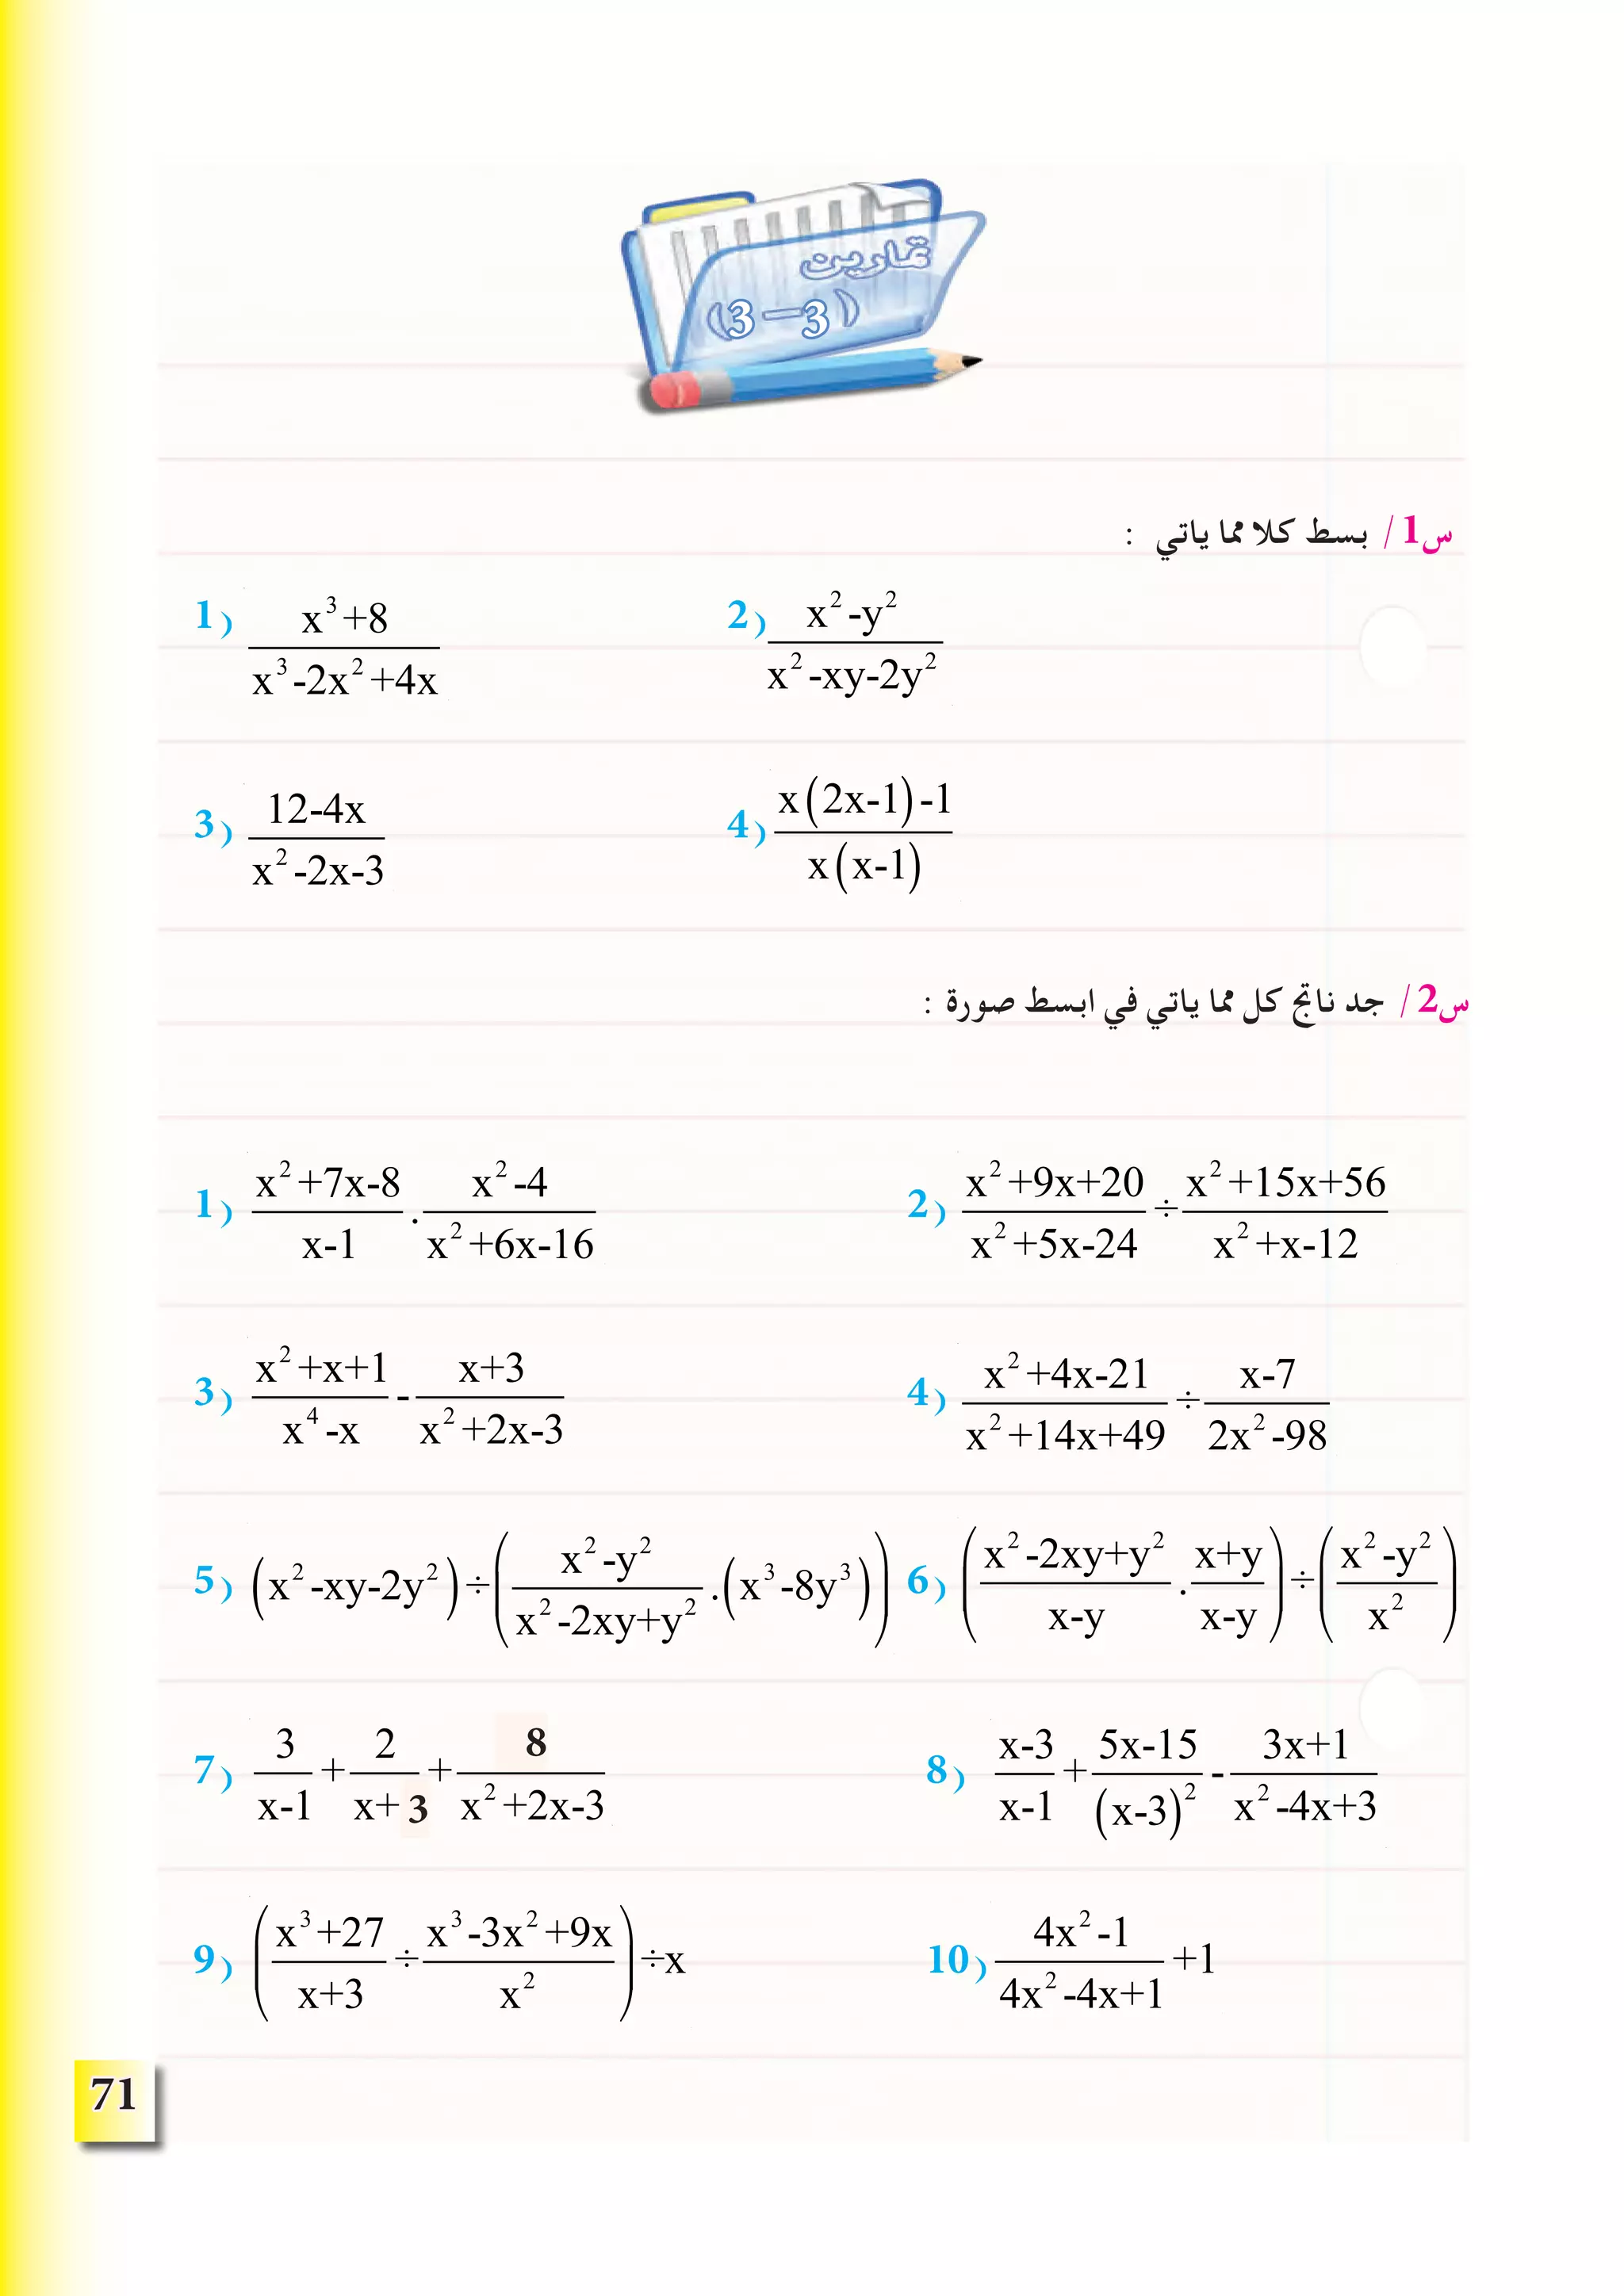 تمارين
(3-3)
س1/ بسط كلا مما ياتي :
1) \frac{x^3+8}{x^3-2x^2+4x} 2) \frac{x^2-y^2}{x^2-xy-2y^2}
3) \frac{12-4x}{x^2-2x-3} 4) \frac{x(2x-1)-1}{x(x-1)}
س2/ جد ناتج كل مما ياتي في ابسط صورة :
1) \frac{x^2+7x-8}{x-1} . \frac{x^2-4}{x^2+6x-16} 2) \frac{x^2+9x+20}{x^2+5x-24} ÷ \frac{x^2+15x+56}{x^2+x-12}
3) \frac{x^2+x+1}{x^4-x} - \frac{x+3}{x^2+2x-3} 4) \frac{x^2+4x-21}{x^2+14x+49} ÷ \frac{x-7}{2x^2-98}
5) (x^2-xy-2y^2) ÷ (\frac{x^2-y^2}{x^2-2xy+y^2} . (x^3-8y^3)) 6) (\frac{x^2-2xy+y^2}{x-y} . \frac{x+y}{x-y}) ÷ (\frac{x^2-y^2}{x^2})
7) \frac{3}{x-1} + \frac{2}{x+3} + \frac{8}{x^2+2x-3} 8) \frac{x-3}{x-1} + \frac{5x-15}{(x-3)^2} - \frac{3x+1}{x^2-4x+3}
9) (\frac{x^3+27}{x+3} ÷ \frac{x^3-3x^2+9x}{x^2}) ÷ x 10) \frac{4x^2-1}{4x^2-4x+1} + 1
71